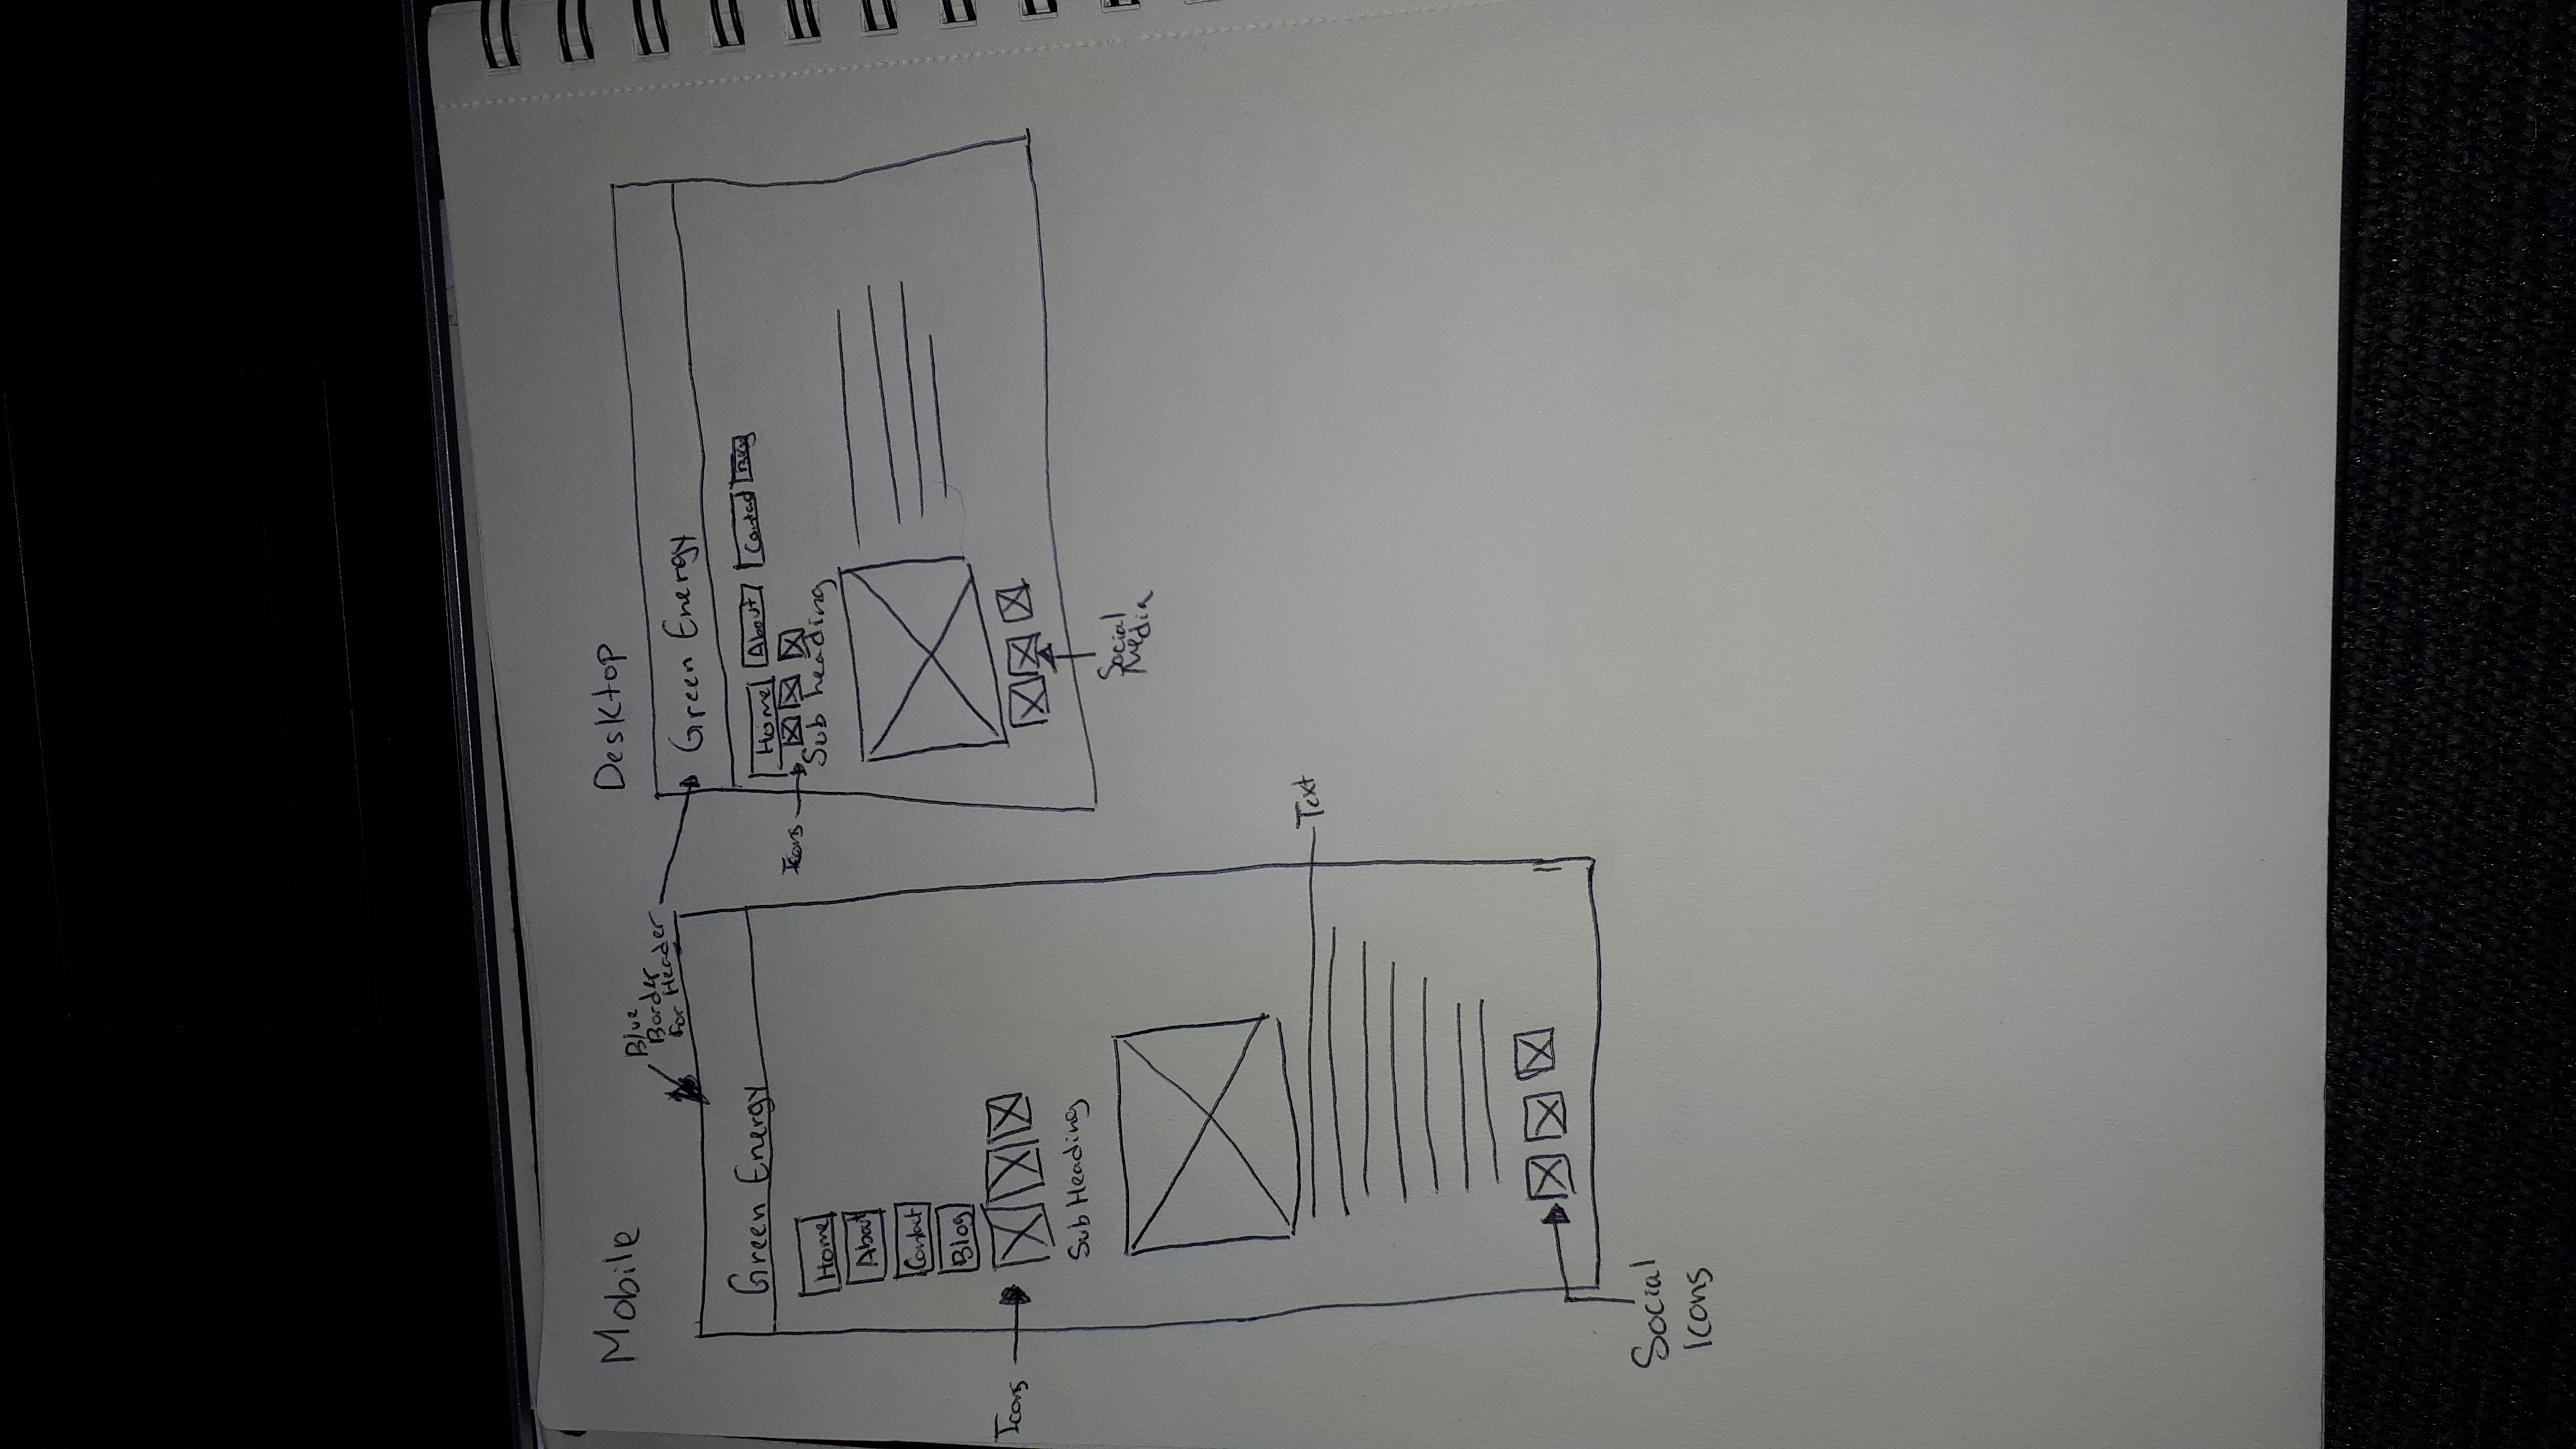 Mobile
Blue
Border
for Header
Green Energy
Home
About
Contact
Blog
Icons
Sub Heading
Text
Social
Icons
Desktop
Green Energy
Home
About
Contact
Icons
Sub heading
Social
Media